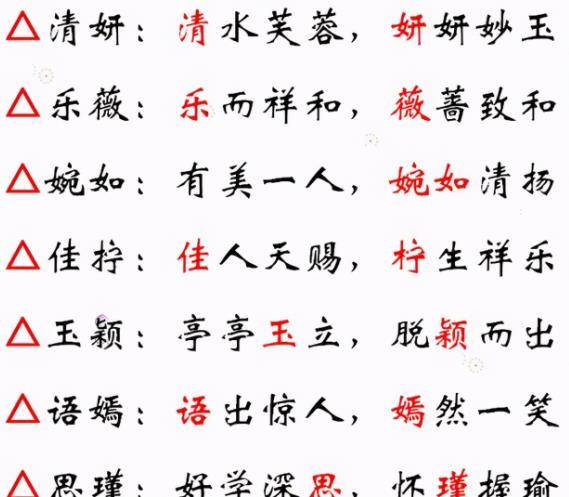 △清妍：清水芙蓉，妍妍妙玉
△乐薇：乐而祥和，薇蔷致和
△婉如：有美一人，婉如清扬
△佳拧：佳人天赐，柠生祥乐
△玉颖：亭亭玉立，脱颖而出
△语嫣：语出惊人，嫣然一笑
△思瑾：好学深思，怀瑾握瑜